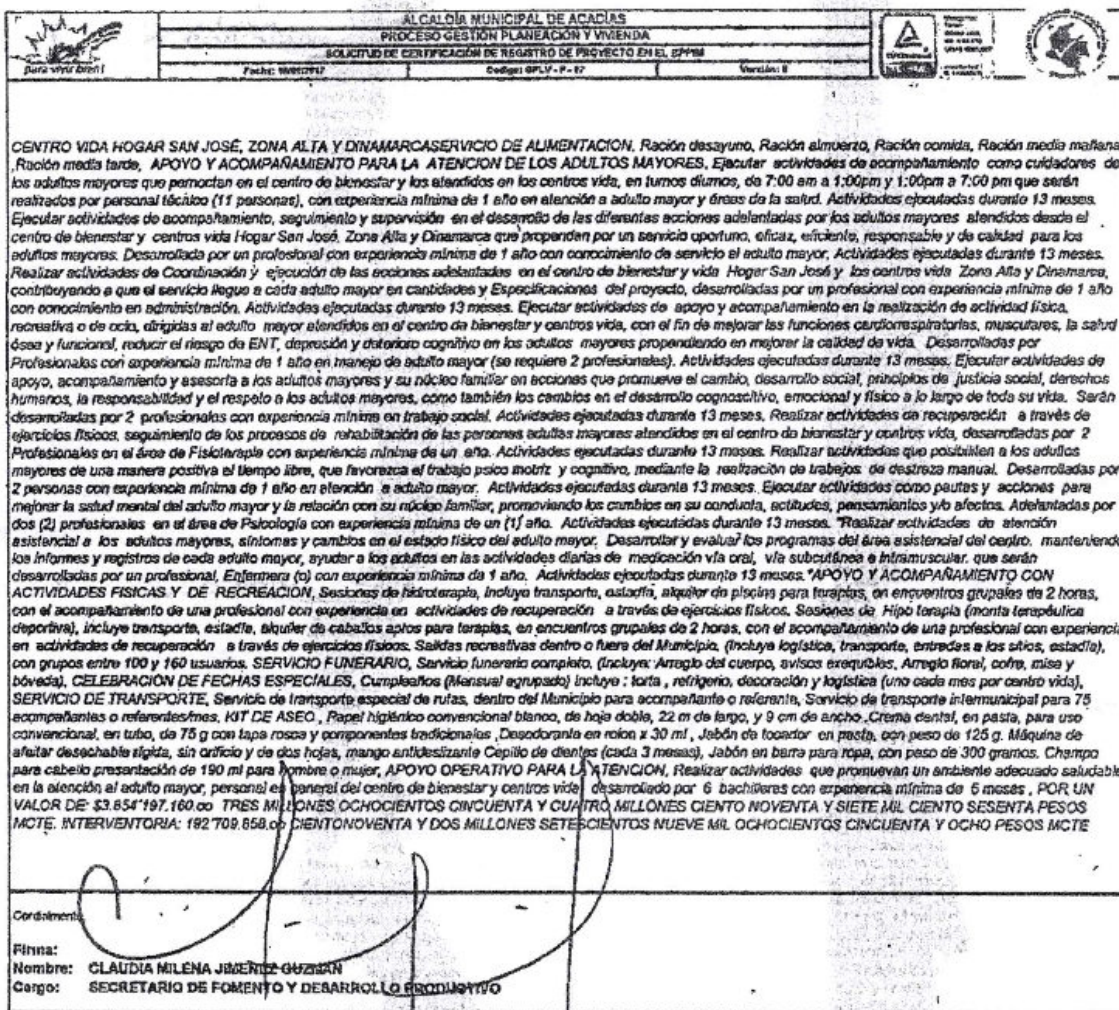 para vivir bien!
ALCALDÍA MUNICIPAL DE ACACÍAS
PROCESO GESTIÓN PLANEACIÓN Y VIVIENDA
SOLICITUD DE CERTIFICACIÓN DE REGISTRO DE PROYECTO EN EL BPPIM
Fecha:
Codigo: GPLV - F - 27
Versión:
CENTRO VIDA HOGAR SAN JOSÉ, ZONA ALTA Y DINAMARCASERVICIO DE ALIMENTACION, Ración desayuno, Ración almuerzo, Ración comida, Ración media mañana
,Ración media tarde, APOYO Y ACOMPAÑAMIENTO PARA LA ATENCION DE LOS ADULTOS MAYORES, Ejecutar actividades de acompañamiento como cuidadores de
los adultos mayores que pernoctan en el centro de bienestar y los atendidos en los centros vida, en turnos diurnos, de 7:00 am a 1:00pm y 1:00pm a 7:00 pm que serán
realizados por personal técnico (11 personas), con experiencia mínima de 1 año en atención a adulto mayor y áreas de la salud. Actividades ejecutadas durante 13 meses.
Ejecutar actividades de acompañamiento, seguimiento y supervisión en el desarrollo de las diferentes acciones adelantadas por los adultos mayores atendidos desde el
centro de bienestar y centros vida Hogar San José, Zona Alta y Dinamarca que propendan por un servicio oportuno, eficaz, eficiente, responsable y de calidad para los
adultos mayores. Desarrollada por un profesional con experiencia mínima de 1 año con conocimiento de servicio el adulto mayor, Actividades ejecutadas durante 13 meses.
Realizar actividades de Coordinación y ejecución de las acciones adelantadas en el centro de bienestar y vida Hogar San José y los centros vida Zona Alta y Dinamarca,
contribuyendo a que el servicio llegue a cada adulto mayor en cantidades y Especificaciones del proyecto, desarrolladas por un profesional con experiencia mínima de 1 año
con conocimiento en administración. Actividades ejecutadas durante 13 meses. Ejecutar actividades de apoyo y acompañamiento en la realización de actividad física,
recreativa o de ocio, dirigidas al adulto mayor atendidos en el centro de bienestar y centros vida, con el fin de mejorar las funciones cardiorrespiratorias, musculares, la salud
ósea y funcional, reducir el riesgo de ENT, depresión y deterioro cognitivo en los adultos mayores propendiendo en mejorar la calidad de vida. Desarrolladas por
Profesionales con experiencia mínima de 1 año en manejo de adulto mayor (se requiere 2 profesionales). Actividades ejecutadas durante 13 meses. Ejecutar actividades de
apoyo, acompañamiento y asesoría a los adultos mayores y su núcleo familiar en acciones que promueve el cambio, desarrollo social, principios de justicia social, derechos
humanos, la responsabilidad y el respeto a los adultos mayores, como también los cambios en el desarrollo cognoscitivo, emocional y físico a lo largo de toda su vida. Serán
desarrolladas por 2 profesionales con experiencia mínima en trabajo social. Actividades ejecutadas durante 13 meses. Realizar actividades de recuperación a través de
ejercicios físicos, seguimiento de los procesos de rehabilitación de las personas adultas mayores atendidos en el centro de bienestar y centros vida, desarrolladas por 2
Profesionales en el área de Fisioterapia con experiencia mínima de un año. Actividades ejecutadas durante 13 meses. Realizar actividades que posibiliten a los adultos
mayores de una manera positiva el tiempo libre, que favorezca el trabajo psico motriz y cognitivo, mediante la realización de trabajos de destreza manual. Desarrolladas por
2 personas con experiencia mínima de 1 año en atención a adulto mayor. Actividades ejecutadas durante 13 meses. Ejecutar actividades como pautas y acciones para
mejorar la salud mental del adulto mayor y la relación con su núcleo familiar, promoviendo los cambios en su conducta, actitudes, pensamientos y/o afectos. Adelantadas por
dos (2) profesionales en el área de Psicología con experiencia mínima de un (1) año. Actividades ejecutadas durante 13 meses. "Realizar actividades de atención
asistencial a los adultos mayores, síntomas y cambios en el estado físico del adulto mayor. Desarrollar y evaluar los programas del área asistencial del centro. manteniendo
los informes y registros de cada adulto mayor, ayudar a los adultos en las actividades diarias de medicación vía oral, vía subcutánea e intramuscular. que serán
desarrolladas por un profesional, Enfermera (o) con experiencia mínima de 1 año. Actividades ejecutadas durante 13 meses."APOYO Y ACOMPAÑAMIENTO CON
ACTIVIDADES FISICAS Y DE RECREACION, Sesiones de hidroterapia, incluye transporte, estadía, alquiler de piscina para terapias, en encuentros grupales de 2 horas,
con el acompañamiento de una profesional con experiencia en actividades de recuperación a través de ejercicios físicos. Sesiones de Hipo terapia (monta terapéutica
deportiva), incluye transporte, estadía, alquiler de caballos aptos para terapias, en encuentros grupales de 2 horas, con el acompañamiento de una profesional con experiencia
en actividades de recuperación a través de ejercicios físicos. Salidas recreativas dentro o fuera del Municipio, (incluye logística, transporte, entradas a los sitios, estadía),
con grupos entre 100 y 160 usuarios. SERVICIO FUNERARIO, Servicio funerario completo, (Incluye: Arreglo del cuerpo, avisos exequibles, Arreglo floral, cofre, misa y
bóveda), CELEBRACION DE FECHAS ESPECIALES, Cumpleaños (Mensual agrupado) incluye : torta , refrigerio, decoración y logística (uno cada mes por centro vida),
SERVICIO DE TRANSPORTE, Servicio de transporte especial de rutas, dentro del Municipio para acompañante o referente, Servicio de transporte intermunicipal para 75
acompañantes o referentes/mes, KIT DE ASEO , Papel higiénico convencional blanco, de hoja doble, 22 m de largo, y 9 cm de ancho ,Crema dental, en pasta, para uso
convencional, en tubo, de 75 g con tapa rosca y componentes tradicionales ,Desodorante en rolon x 30 ml , Jabón de tocador en pasta, con peso de 125 g. Máquina de
afeitar desechable rígida, sin orificio y de dos hojas, mango antideslizante Cepillo de dientes (cada 3 meses), Jabón en barra para ropa, con peso de 300 gramos. Champo
para cabello presentación de 190 ml para hombre o mujer, APOYO OPERATIVO PARA LA ATENCION, Realizar actividades que promuevan un ambiente adecuado saludable
en la atención al adulto mayor, personal en general del centro de bienestar y centros vida desarrollado por 6 bachilleres con experiencia mínima de 6 meses , POR UN
VALOR DE: $3.854'197.160.oo TRES MILLONES OCHOCIENTOS CINCUENTA Y CUATRO MILLONES CIENTO NOVENTA Y SIETE MIL CIENTO SESENTA PESOS
MCTE. INTERVENTORIA: 192'709.858.oo CIENTONOVENTA Y DOS MILLONES SETESCIENTOS NUEVE MIL OCHOCIENTOS CINCUENTA Y OCHO PESOS MCTE
Cordialmente
Firma:
Nombre: CLAUDIA MILENA JIMENEZ GUZMAN
Cargo: SECRETARIO DE FOMENTO Y DESARROLLO PRODUCTIVO